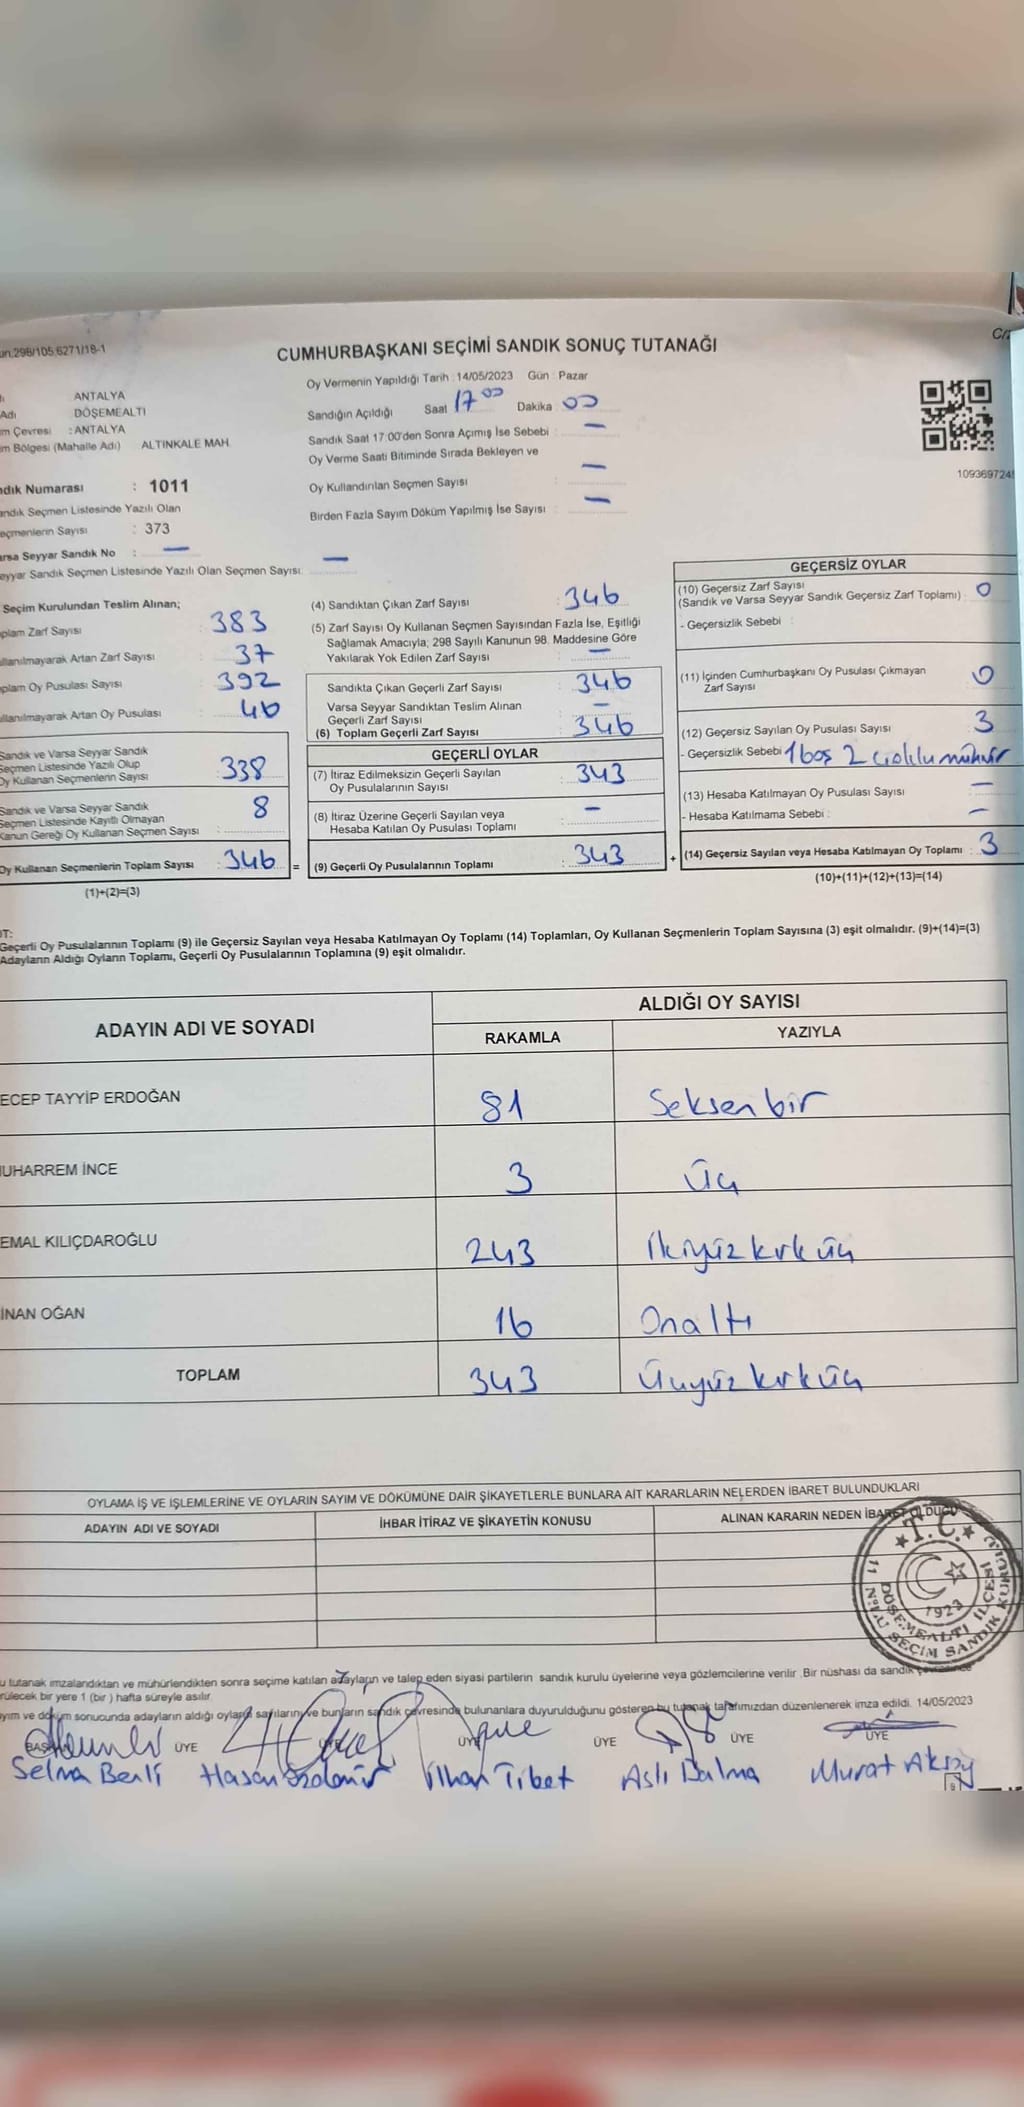 un.298/105.6271/18-1
CUMHURBAŞKANI SEÇİMİ SANDIK SONUÇ TUTANAĞI
ANTALYA
Adı DÖŞEMEALTI
m Çevresi : ANTALYA
m Bölgesi (Mahalle Adı) ALTINKALE MAH.
ndık Numarası : 1011
andık Seçmen Listesinde Yazılı Olan
eçmenlerin Sayısı : 373
arsa Seyyar Sandık No : —
eyyar Sandık Seçmen Listesinde Yazılı Olan Seçmen Sayısı: —
Oy Vermenin Yapıldığı Tarih : 14/05/2023 Gün : Pazar
Sandığın Açıldığı Saat 17 00 Dakika 00
Sandık Saat 17:00'den Sonra Açımış İse Sebebi : —
Oy Verme Saati Bitiminde Sırada Bekleyen ve
Oy Kullandırılan Seçmen Sayısı : —
Birden Fazla Sayım Döküm Yapılmış İse Sayısı : —
1093697245
Seçim Kurulundan Teslim Alınan;
plam Zarf Sayısı : 383
llanılmayarak Artan Zarf Sayısı : 37
plam Oy Pusulası Sayısı : 392
llanılmayarak Artan Oy Pusulası : 46
Sandık ve Varsa Seyyar Sandık
Seçmen Listesinde Yazılı Olup
Oy Kullanan Seçmenlerin Sayısı : 338
Sandık ve Varsa Seyyar Sandık
Seçmen Listesinde Kayıtlı Olmayan
Kanun Gereği Oy Kullanan Seçmen Sayısı : 8
Oy Kullanan Seçmenlerin Toplam Sayısı : 346 =
(1)+(2)=(3)
(4) Sandıktan Çıkan Zarf Sayısı : 346
(5) Zarf Sayısı Oy Kullanan Seçmen Sayısından Fazla İse, Eşitliği
Sağlamak Amacıyla; 298 Sayılı Kanunun 98. Maddesine Göre
Yakılarak Yok Edilen Zarf Sayısı : —
Sandıkta Çıkan Geçerli Zarf Sayısı : 346
Varsa Seyyar Sandıktan Teslim Alınan
Geçerli Zarf Sayısı : —
(6) Toplam Geçerli Zarf Sayısı : 346
GEÇERLİ OYLAR
(7) İtiraz Edilmeksizin Geçerli Sayılan
Oy Pusulalarının Sayısı : 343
(8) İtiraz Üzerine Geçerli Sayılan veya
Hesaba Katılan Oy Pusulası Toplamı : —
(9) Geçerli Oy Pusulalarının Toplamı : 343 +
GEÇERSİZ OYLAR
(10) Geçersiz Zarf Sayısı
(Sandık ve Varsa Seyyar Sandık Geçersiz Zarf Toplamı) : 0
- Geçersizlik Sebebi :
(11) İçinden Cumhurbaşkanı Oy Pusulası Çıkmayan
Zarf Sayısı : 0
(12) Geçersiz Sayılan Oy Pusulası Sayısı : 3
- Geçersizlik Sebebi 1 boş 2 mühür
(13) Hesaba Katılmayan Oy Pusulası Sayısı : —
- Hesaba Katılmama Sebebi : —
(14) Geçersiz Sayılan veya Hesaba Katılmayan Oy Toplamı : 3
(10)+(11)+(12)+(13)=(14)
OT:
Geçerli Oy Pusulalarının Toplamı (9) ile Geçersiz Sayılan veya Hesaba Katılmayan Oy Toplamı (14) Toplamları, Oy Kullanan Seçmenlerin Toplam Sayısına (3) eşit olmalıdır. (9)+(14)=(3)
Adayların Aldığı Oyların Toplamı, Geçerli Oy Pusulalarının Toplamına (9) eşit olmalıdır.
ADAYIN ADI VE SOYADI
ALDIĞI OY SAYISI
RAKAMLA YAZIYLA
ECEP TAYYİP ERDOĞAN 81 Seksen bir
UHARREM İNCE 3 Üç
EMAL KILIÇDAROĞLU 243 İkiyüz kırk üç
İNAN OĞAN 16 Onaltı
TOPLAM 343 Üçyüz kırk üç
OYLAMA İŞ VE İŞLEMLERİNE VE OYLARIN SAYIM VE DÖKÜMÜNE DAİR ŞİKAYETLERLE BUNLARA AİT KARARLARIN NELERDEN İBARET BULUNDUKLARI
ADAYIN ADI VE SOYADI İHBAR İTİRAZ VE ŞİKAYETİN KONUSU ALINAN KARARIN NEDEN İBARET OLDUĞU
T.C.
1923
DÖŞEMEALTI İLÇESİ
11 NO'LU SEÇİM SANDIK KURULU
u tutanak imzalandıktan ve mühürlendikten sonra seçime katılan adayların ve talep eden siyasi partilerin sandık kurulu üyelerine veya gözlemcilerine verilir .Bir nüshası da sandık çevresince
rülecek bir yere 1 (bir ) hafta süreyle asılır.
ayım ve döküm sonucunda adayların aldığı oyların sayılarını ve bunların sandık çevresinde bulunanlara duyurulduğunu gösteren bu tutanak tarafımızdan düzenlenerek imza edildi. 14/05/2023
BAŞ ÜYE ÜYE ÜYE ÜYE ÜYE
Selma Benli Hasan Özdemir İlhan Tibet Aslı Dalma Murat Aksoy